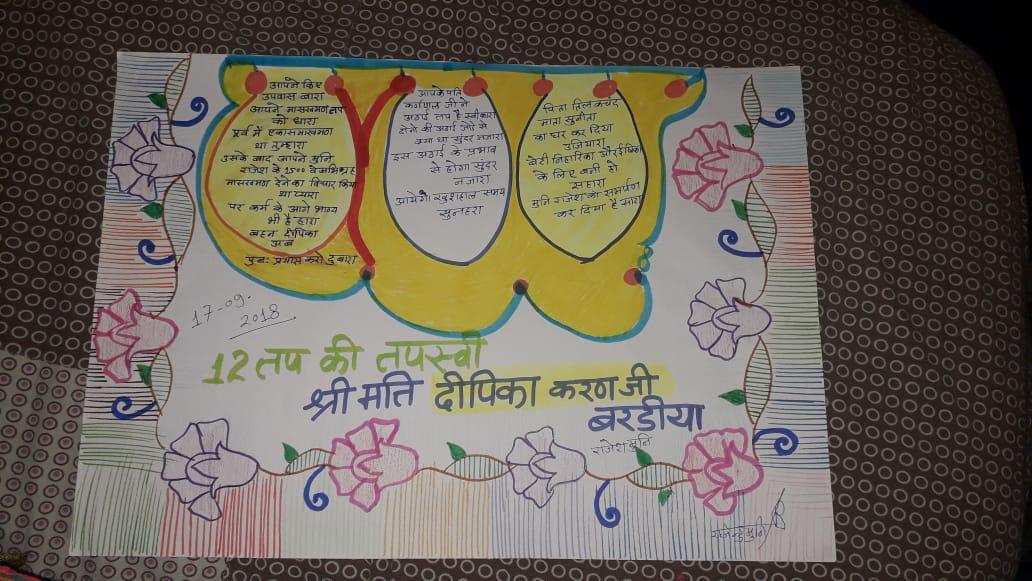 आपने किए
उपवास बारा
आपने मासखमण तप
को धारा
पूर्व में एक मासखमण
था तुम्हारा
उसके बाद आपने मुनि
राजेश के 1500
मासखमण देने का विचार किया
था प्यारा
पर कर्म के आगे भाग्य
भी है हारा
बहन दीपिका
अब
पुनः प्रयास करो दुबारा
आपके पति
करणलाल जी ने
अठाई तप है स्वीकारा
दोनों की अठाई जोड़े से
क्या था सुंदर नजारा
इस अठाई के प्रभाव
से होगा सुंदर
नजारा
आयेगा खुशहाल समय
सुनहरा
पिता तिलकचंद
माता सुनीता
का घर कर दिया
उजियारा
बेटी निहारिका और
के लिए बनी हो
सहारा
मुनि राजेश को समर्पण
कर दिया है सारा
17-09-
2018
12 तप की तपस्वी
श्रीमति दीपिका करण जी
बरडीया
राजेश मुनि
राजेन्द्र मुनि